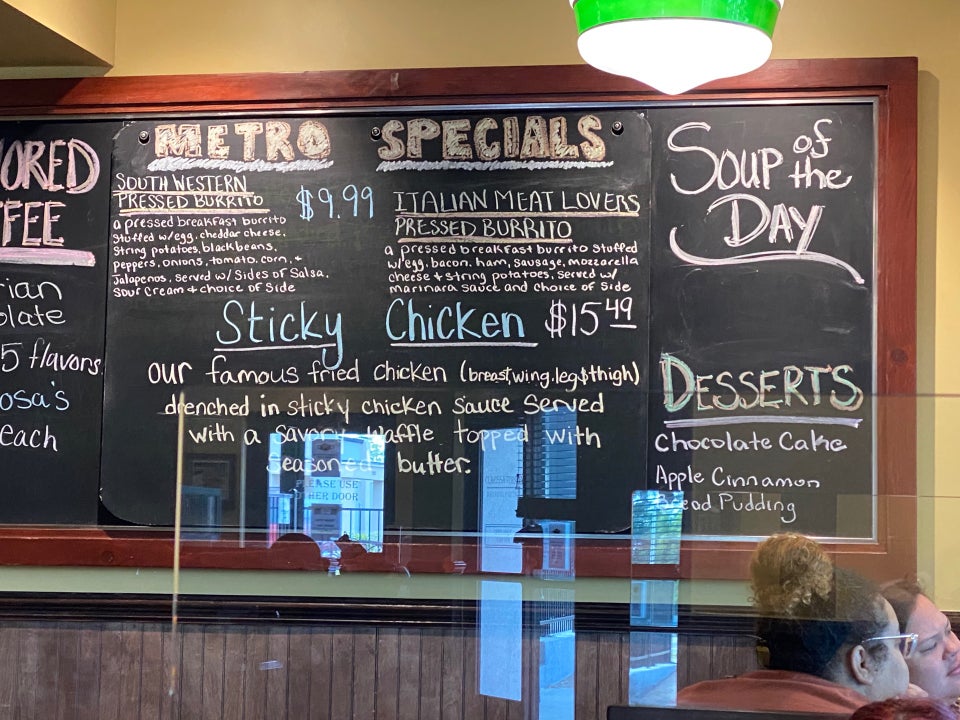 ORED
FEE
rian
olate
5 flavors
osa's
each
METRO SPECIALS
SOUTH WESTERN
PRESSED BURRITO
$9.99
a pressed breakfast burrito
stuffed w/egg, cheddar cheese,
string potatoes, blackbeans,
peppers, onions, tomato, corn, +
Jalapenos, served w/ Sides of Salsa,
Sour Cream + choice of Side
ITALIAN MEAT LOVERS
PRESSED BURRITO
a pressed breakfast burrito stuffed
w/egg, bacon, ham, sausage, mozzarella
cheese + string potatoes, served w/
marinara sauce and choice of Side
Sticky Chicken $15.49
our famous fried chicken (breast, wing, leg & thigh)
drenched in sticky chicken sauce served
with a savory waffle topped with
seasoned butter.
PLEASE USE
OTHER DOOR
Soup of the
Day
DESSERTS
Chocolate Cake
Apple Cinnamon
Bread Pudding